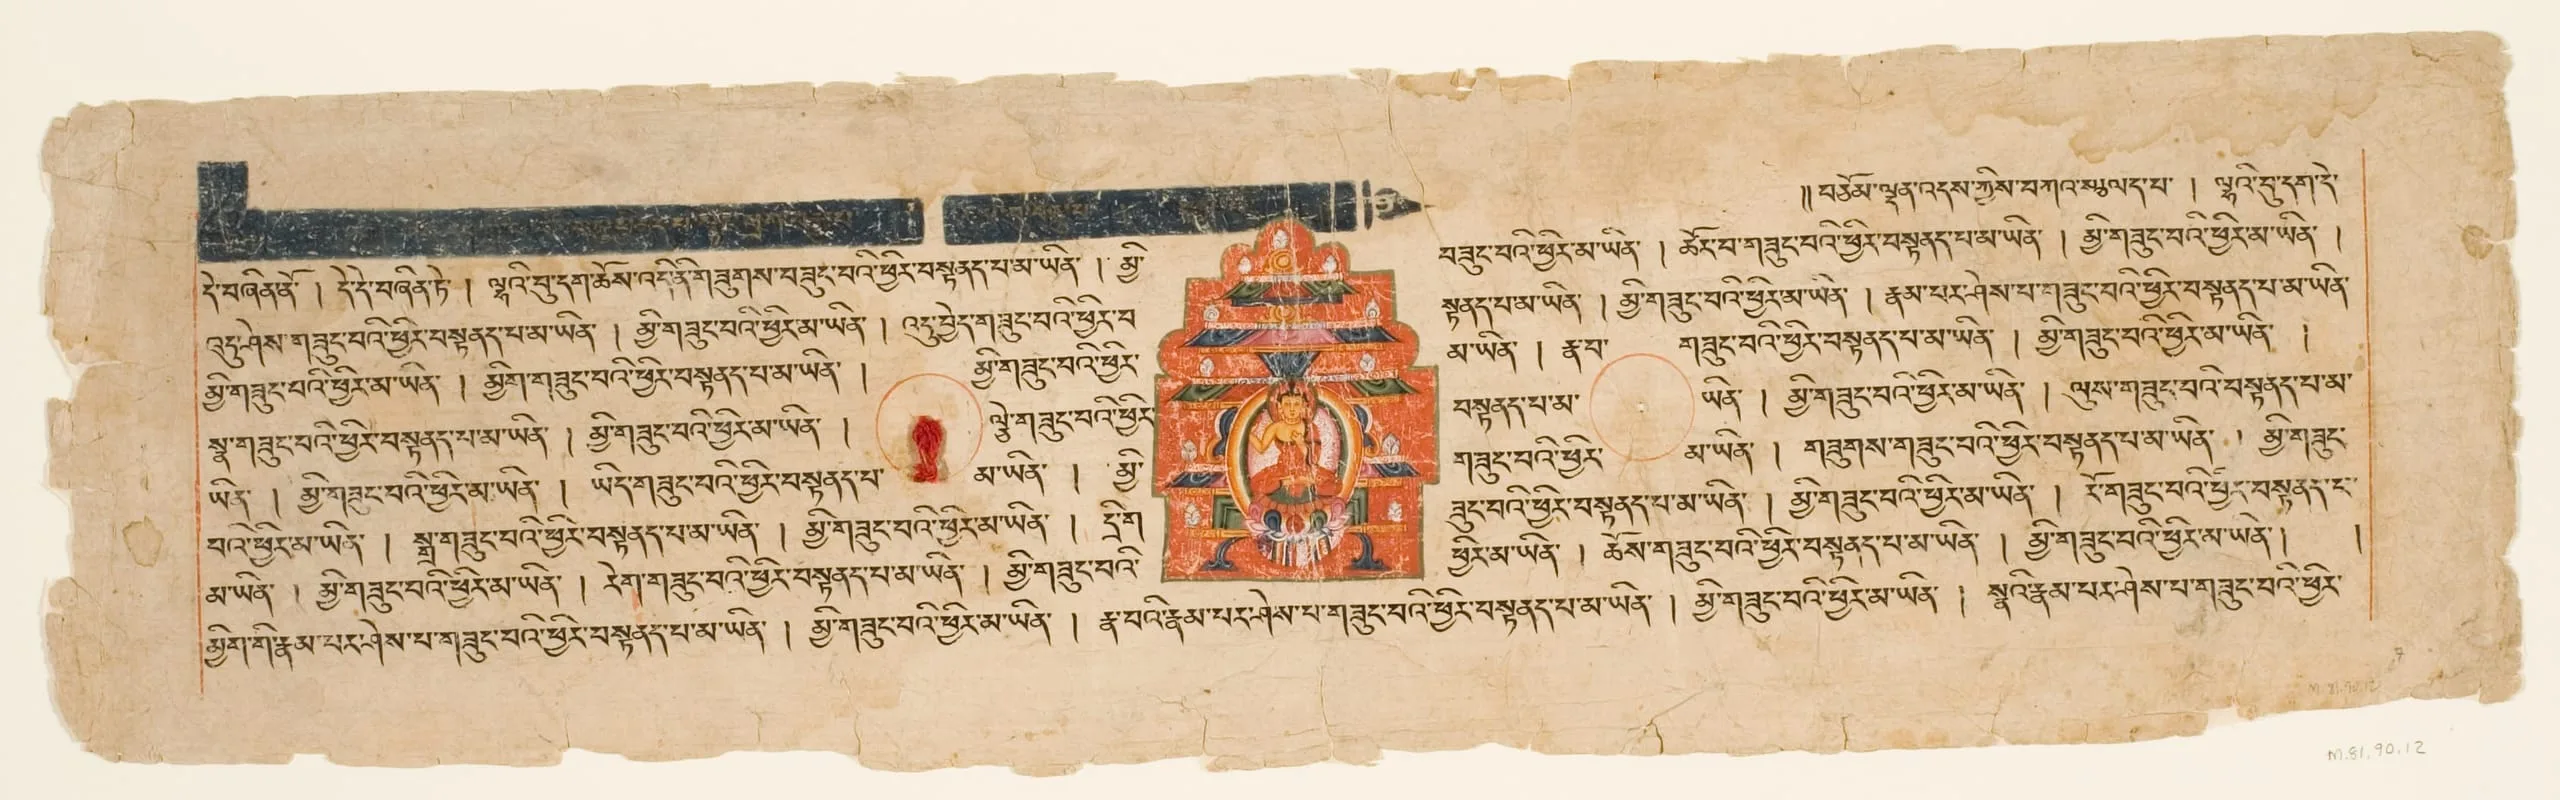 ༎ བཅོམ་ལྡན་འདས་ཀྱིས་བཀའ་སྩལད་པ་ ། ལྷའི་བུ་དག་དེ་
དེ་བཞིན་ནོ་ ། དེ་དེ་བཞིན་ཏེ་ ། ལྷའི་བུ་དག་ཆོས་འདི་ནི་གཟུགས་བཟུང་བའི་ཕྱིར་བསྟནད་པ་མ་ཡིན་ ། མྱི་ བཟུང་བའི་ཕྱིར་མ་ཡིན་ ། ཚོར་བ་གཟུང་བའི་ཕྱིར་བསྟནད་པ་མ་ཡིན་ ། མྱི་གཟུང་བའི་ཕྱིར་མ་ཡིན་ །
འདུ་ཤེས་གཟུང་བའི་ཕྱིར་བསྟནད་པ་མ་ཡིན་ ། མྱི་གཟུང་བའི་ཕྱིར་མ་ཡིན་ ། འདུ་བྱེད་གཟུང་བའི་ཕྱིར་བ སྟནད་པ་མ་ཡིན་ ། མྱི་གཟུང་བའི་ཕྱིར་མ་ཡིན་ ། རྣམ་པར་ཤེས་པ་གཟུང་བའི་ཕྱིར་བསྟནད་པ་མ་ཡིན་
མྱི་གཟུང་བའི་ཕྱིར་མ་ཡིན་ ། མྱིག་གཟུང་བའི་ཕྱིར་བསྟནད་པ་མ་ཡིན་ ། མྱི་གཟུང་བའི་ཕྱིར་ མ་ཡིན་ ། རྣ་བ་ གཟུང་བའི་ཕྱིར་བསྟནད་པ་མ་ཡིན་ ། མྱི་གཟུང་བའི་ཕྱིར་མ་ཡིན་ །
སྣ་གཟུང་བའི་ཕྱིར་བསྟནད་པ་མ་ཡིན་ ། མྱི་གཟུང་བའི་ཕྱིར་མ་ཡིན་ ། ལྕེ་གཟུང་བའི་ཕྱིར་ བསྟནད་པ་མ་ ཡིན་ ། མྱི་གཟུང་བའི་ཕྱིར་མ་ཡིན་ ། ལུས་གཟུང་བའི་བསྟནད་པ་མ་
ཡིན་ ། མྱི་གཟུང་བའི་ཕྱིར་མ་ཡིན་ ། ཡིད་གཟུང་བའི་ཕྱིར་བསྟནད་པ་ མ་ཡིན་ ། མྱི་ གཟུང་བའི་ཕྱིར་ མ་ཡིན་ ། གཟུགས་གཟུང་བའི་ཕྱིར་བསྟནད་པ་མ་ཡིན་ ། མྱི་གཟུང་
བའི་ཕྱིར་མ་ཡིན་ ། སྒྲ་གཟུང་བའི་ཕྱིར་བསྟནད་པ་མ་ཡིན་ ། མྱི་གཟུང་བའི་ཕྱིར་མ་ཡིན་ ། དྲི་ག ཟུང་བའི་ཕྱིར་བསྟནད་པ་མ་ཡིན་ ། མྱི་གཟུང་བའི་ཕྱིར་མ་ཡིན་ ། རོ་གཟུང་བའི་ཕྱིར་བསྟནད་པ་
མ་ཡིན་ ། མྱི་གཟུང་བའི་ཕྱིར་མ་ཡིན་ ། རེག་གཟུང་བའི་ཕྱིར་བསྟནད་པ་མ་ཡིན་ ། མྱི་གཟུང་བའི་ ཕྱིར་མ་ཡིན་ ། ཆོས་གཟུང་བའི་ཕྱིར་བསྟནད་པ་མ་ཡིན་ ། མྱི་གཟུང་བའི་ཕྱིར་མ་ཡིན་ ། །
མྱིག་གི་རྣམ་པར་ཤེས་པ་གཟུང་བའི་ཕྱིར་བསྟནད་པ་མ་ཡིན་ ། མྱི་གཟུང་བའི་ཕྱིར་མ་ཡིན་ ། རྣ་བའི་རྣམ་པར་ཤེས་པ་གཟུང་བའི་ཕྱིར་བསྟནད་པ་མ་ཡིན་ ། མྱི་གཟུང་བའི་ཕྱིར་མ་ཡིན་ ། སྣའི་རྣམ་པར་ཤེས་པ་གཟུང་བའི་ཕྱིར་
M.81.90.12
M.81.90.12